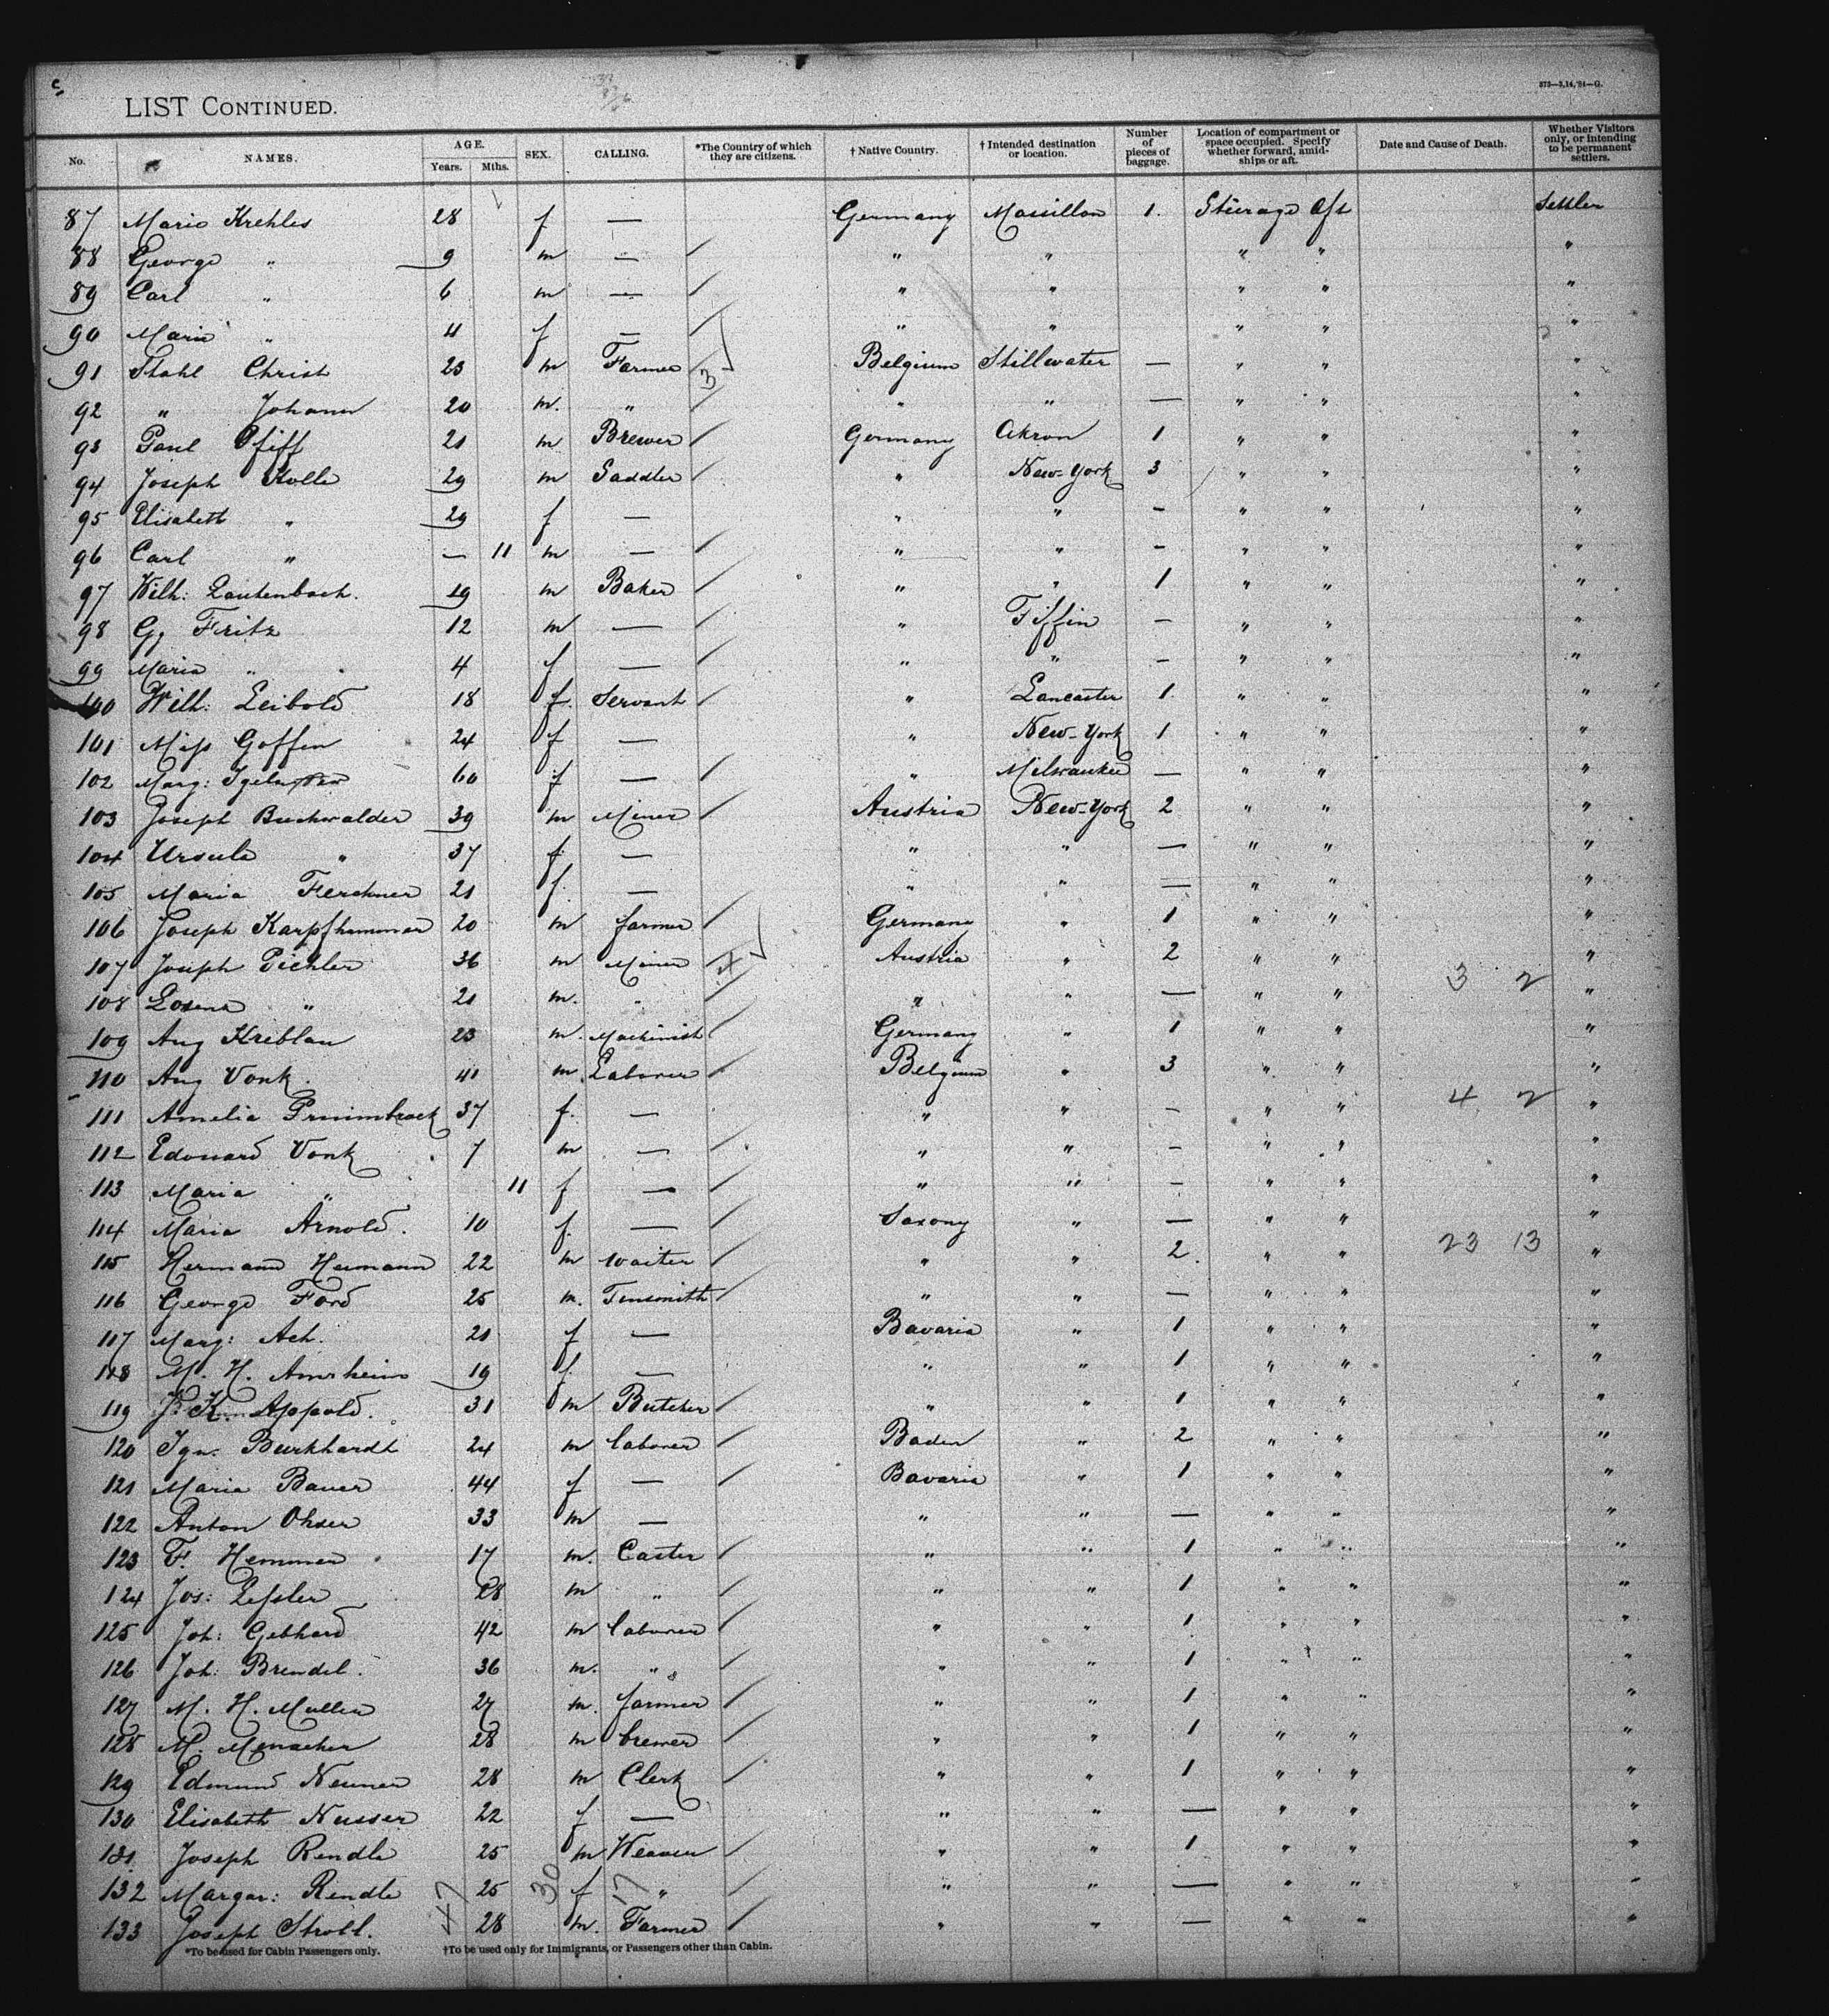 373—3,14,'91—G.
LIST CONTINUED.
No. NAMES. AGE. Years. Mths. SEX. CALLING. *The Country of which they are citizens. † Native Country. † Intended destination or location. Number of pieces of baggage. Location of compartment or space occupied. Specify whether forward, amidships or aft. Date and Cause of Death. Whether Visitors only, or intending to be permanent settlers.
87 Marie Krehles 28 f — Germany Massillon 1. Steerage Aft Settler
88 George " 9 m — " " " " "
89 Carl " 6 m — " " " " "
90 Marie " 4 f — " " " " "
91 Stahl Christ 23 m Farmer Belgium Stillwater — " " "
92 " Johann 20 m. " " " — " " "
93 Paul Pfiff 21 m Brewer Germany Akron 1 " " "
94 Joseph Kolle 29 m Saddler " New-York 3 " " "
95 Elisabeth " 29 f — " " - " " "
96 Carl " — 11 m — " " - " " "
97 Wilh: Lautenbach. 19 m Baker " " 1 " " "
98 Gg Fritz 12 m — " Tiffin — " " "
99 Maria " 4 f — " " — " " "
100 Wilh: Leibold 18 f. Servant " Lancaster 1 " " "
101 Miss Goffin 24 f — " New-York 1 " " "
102 Marg: 60 f — " Milwaukee — " " "
103 Joseph Buchwalder 39 m Miner Austria New-York 2 " " "
104 Ursula " 37 f — " " — " " "
105 Maria Ferchner 21 f. — " " — " " "
106 Joseph Karpfhammer 20 m farmer Germany " 1 " " "
107 Joseph Pichler 36 m Miner Austria " 2 " " "
108 Lorenz " 21 m. " " " — " " 3 2 "
109 Aug Kreblau 23 m. Machinist Germany " 1 " " "
110 Aug Vonk. 41 m. Laborer Belgium " 3 " " "
111 Amelia 37 f. — " " - " " 4 2 "
112 Edouard Vonk 7 m — " " - " " "
113 Maria " 11 f — " " - " " "
114 Maria Arnold. 10 f. — Saxony " — " " "
115 Hermann Heimann 22 m Waiter " " 2 " " 23 13 "
116 George Ford 25 m. Tinsmith " " — " " "
117 Marg: Ach. 21 f — Bavaria " 1 " " "
118 M. H. Amrhein 19 f. — " " 1 " " "
119 Appold. 31 m Butcher " " 1 " " "
120 Ign. Burkhardt 24 m laborer Baden " 2 " " "
121 Maria Bauer 44 f — Bavaria " 1 " " "
122 Anton Ohser 33 m — " " — " " "
123 F. Hemmer 17 m. Caster " " 1 " " "
124 Jos: Lessler 28 m " " " 1 " " "
125 Joh: Gebhard 42 m laborer " " 1 " " "
126 Joh: Brendel. 36 m. " " " 1 " " "
127 M. H. Muller 27 m. farmer " " 1 " " "
128 M. Menacher 28 m brewer " " 1 " " "
129 Edmund Neuner 28 m Clerk " " 1 " " "
130 Elisabeth Nusser 22 f — " " — " " "
131 Joseph Rendle 25 m Weaver " " 1 " " "
132 Margar: Rendle 25 f " " " — " " "
133 Joseph Stroll. 28 m. Farmer " " — " " "
47 30 17
*To be used for Cabin Passengers only. †To be used only for Immigrants, or Passengers other than Cabin.